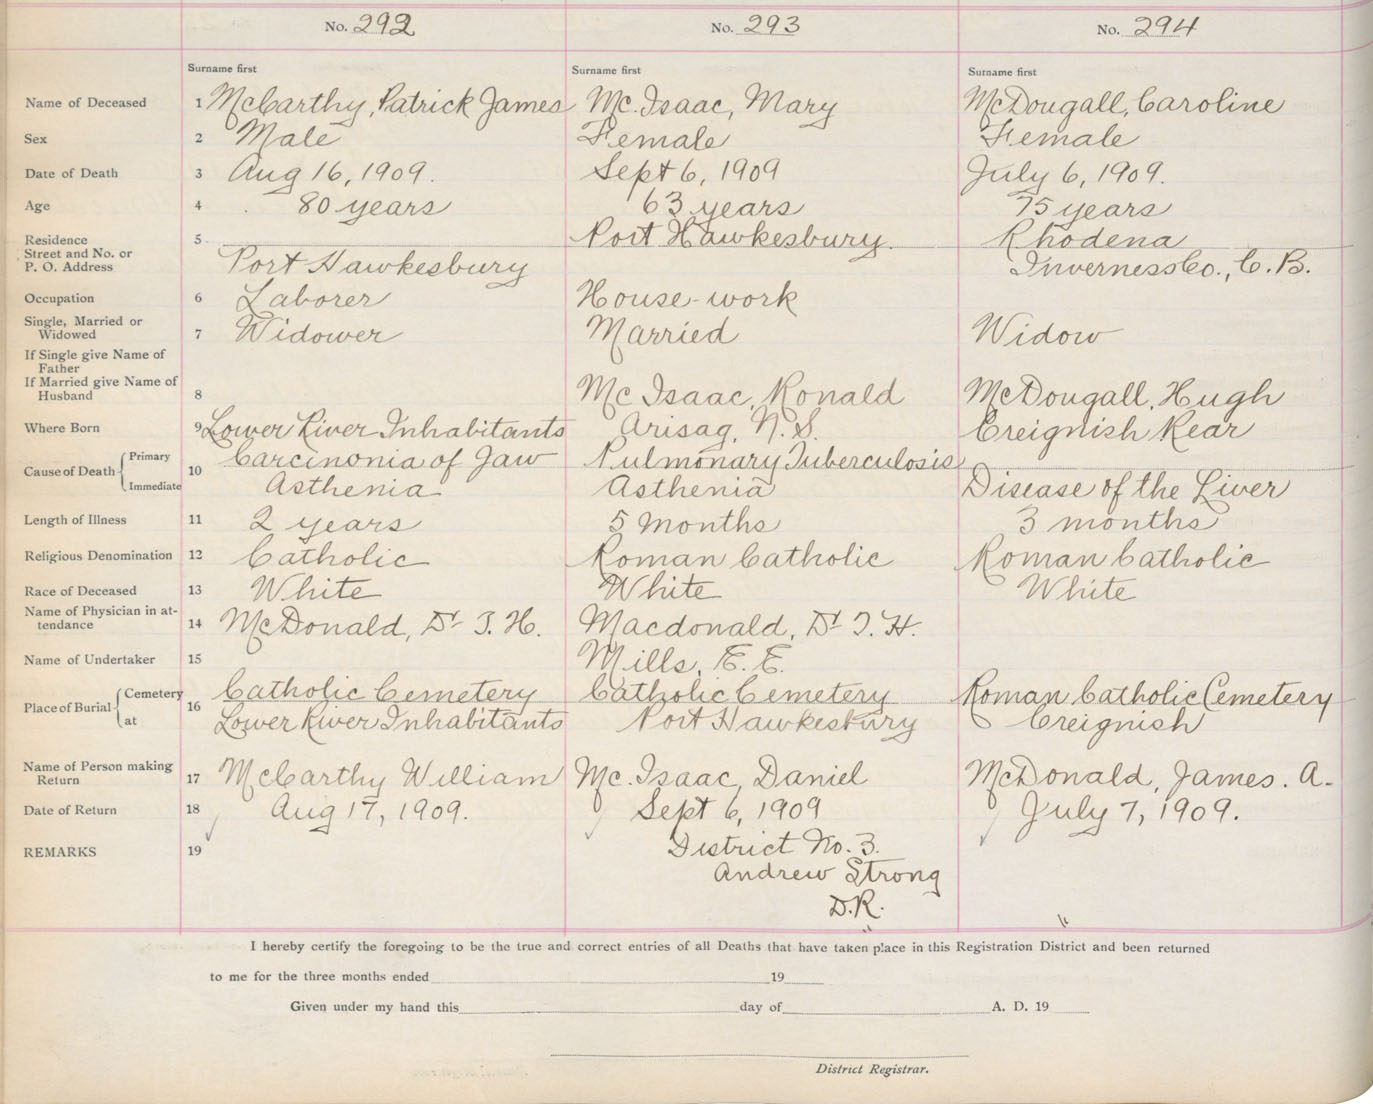 No. 292 No. 293 No. 294
Surname first Surname first Surname first
Name of Deceased 1 McCarthy, Patrick James Mc. Isaac, Mary McDougall, Caroline
Sex 2 Male Female Female
Date of Death 3 Aug 16, 1909. Sept 6, 1909 July 6, 1909.
Age 4 80 years 63 years 75 years
Residence 5 Port Hawkesbury. Rhodena
Street and No. or
P. O. Address Port Hawkesbury Inverness Co., C.B.
Occupation 6 Laborer House-work
Single, Married or
Widowed 7 Widower Married Widow
If Single give Name of
Father
If Married give Name of
Husband 8 Mc Isaac, Ronald McDougall, Hugh
Where Born 9 Lower River Inhabitants Arisag, N.S. Creignish Rear
Cause of Death Primary 10 Carcinonia of Jaw Pulmonary Tuberculosis
Immediate Asthenia Asthenia Disease of the Liver
Length of Illness 11 2 years 5 months 3 months
Religious Denomination 12 Catholic Roman Catholic Roman Catholic
Race of Deceased 13 White White White
Name of Physician in at-
tendance 14 McDonald, Dr J. H. Macdonald, Dr J. H.
Name of Undertaker 15 Mills, E. E.
Place of Burial Cemetery 16 Catholic Cemetery Catholic Cemetery Roman Catholic Cemetery
at Lower River Inhabitants Port Hawkesbury Creignish
Name of Person making
Return 17 McCarthy William Mc. Isaac, Daniel McDonald, James. A.
Date of Return 18 Aug 17, 1909. Sept 6, 1909 July 7, 1909.
REMARKS 19 District No. 3.
Andrew Strong
D.R.
I hereby certify the foregoing to be the true and correct entries of all Deaths that have taken place in this Registration District and been returned
to me for the three months ended 19
Given under my hand this day of A. D. 19
District Registrar.